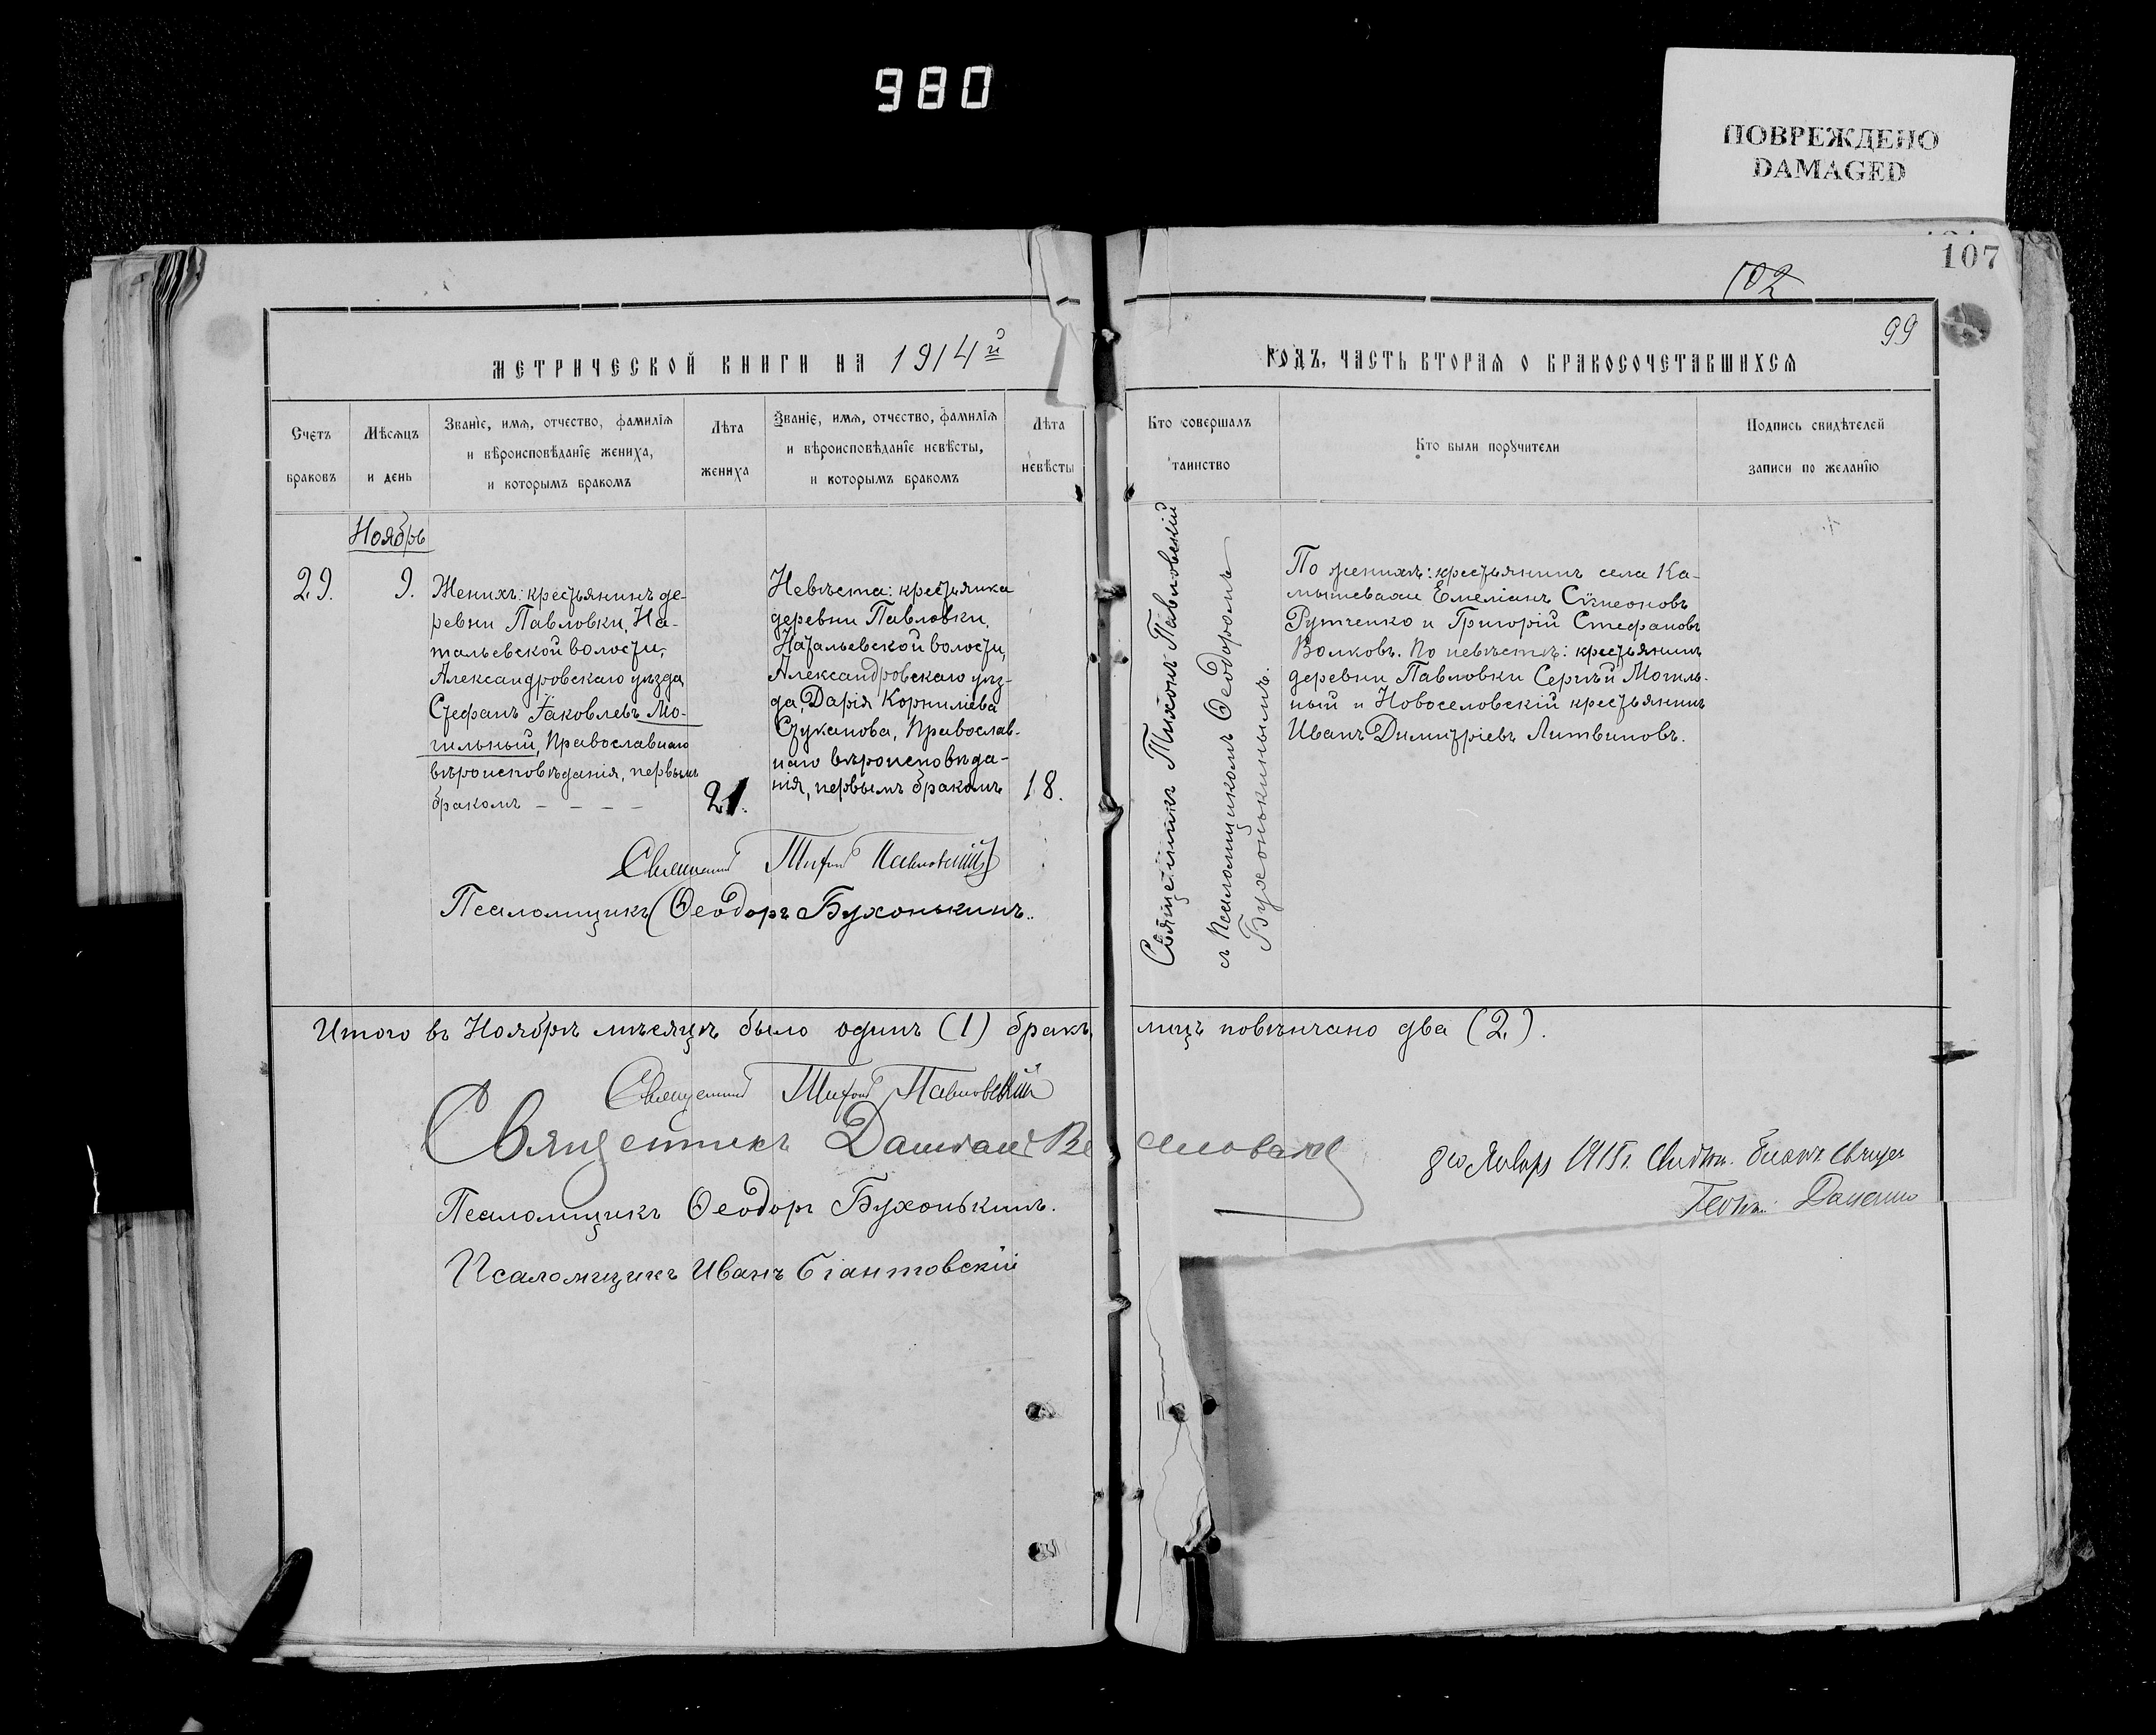 980
ПОВРЕЖДЕНО
DAMAGED
107
102
99
МЕТРИЧЕСКОЙ КНИГИ НА 1914й
ГОДЪ, ЧАСТЬ ВТОРАЯ О БРАКОСОЧЕТАВШИХСЯ
Счетъ
браковъ
Мѣсяцъ
и день
Званіе, имя, отчество, фамилія
и вѣроисповѣданіе жениха,
и которымъ бракомъ
Лѣта
жениха
Званіе, имя, отчество, фамилія
и вѣроисповѣданіе невѣсты,
и которымъ бракомъ
Лѣта
невѣсты
Кто совершалъ
таинство
Кто были поручители
Подпись свидѣтелей
записи по желанію
Ноябрь
29.
9.
Женихъ: крестьянинъ де-
ревни Павловки, На-
тальевской волости,
Александровскаго уѣзда
Стефанъ Іаковлевъ Мо-
гильный, Православнаго
вѣроисповѣданія, первымъ
бракомъ – – – –
21.
Невѣста: крестьянка
деревни Павловки,
Натальевской волости,
Александровскаго уѣз-
да, Дарія Корниліева
Стуканова, Православ-
наго вѣроисповѣда-
нія, первымъ бракомъ
18.
Священникъ Тихонъ Павловскій
съ Псаломщикомъ Ѳеодоромъ
Бухонькинымъ.
По женихѣ: крестьянинъ села Ка-
мышевахи Емеліанъ Сѵмеоновъ
Рутченко и Григорій Стефановъ
Волковъ. По невѣстѣ: крестьянинъ
деревни Павловки Сергѣй Могиль-
ный и Новоселовскій крестьянинъ
Иванъ Димитріевъ Литвиновъ.
Священникъ Тихонъ Павловскій
Псаломщикъ Ѳеодоръ Бухонькинъ.
Итого въ Ноябрѣ мѣсяцѣ было одинъ (1) бракъ, лицъ повѣнчано два (2).
Священникъ Тихонъ Павловскій
Священникъ
Псаломщикъ Ѳеодоръ Бухонькинъ.
Псаломщикъ Иванъ
8го Январ 1915г.